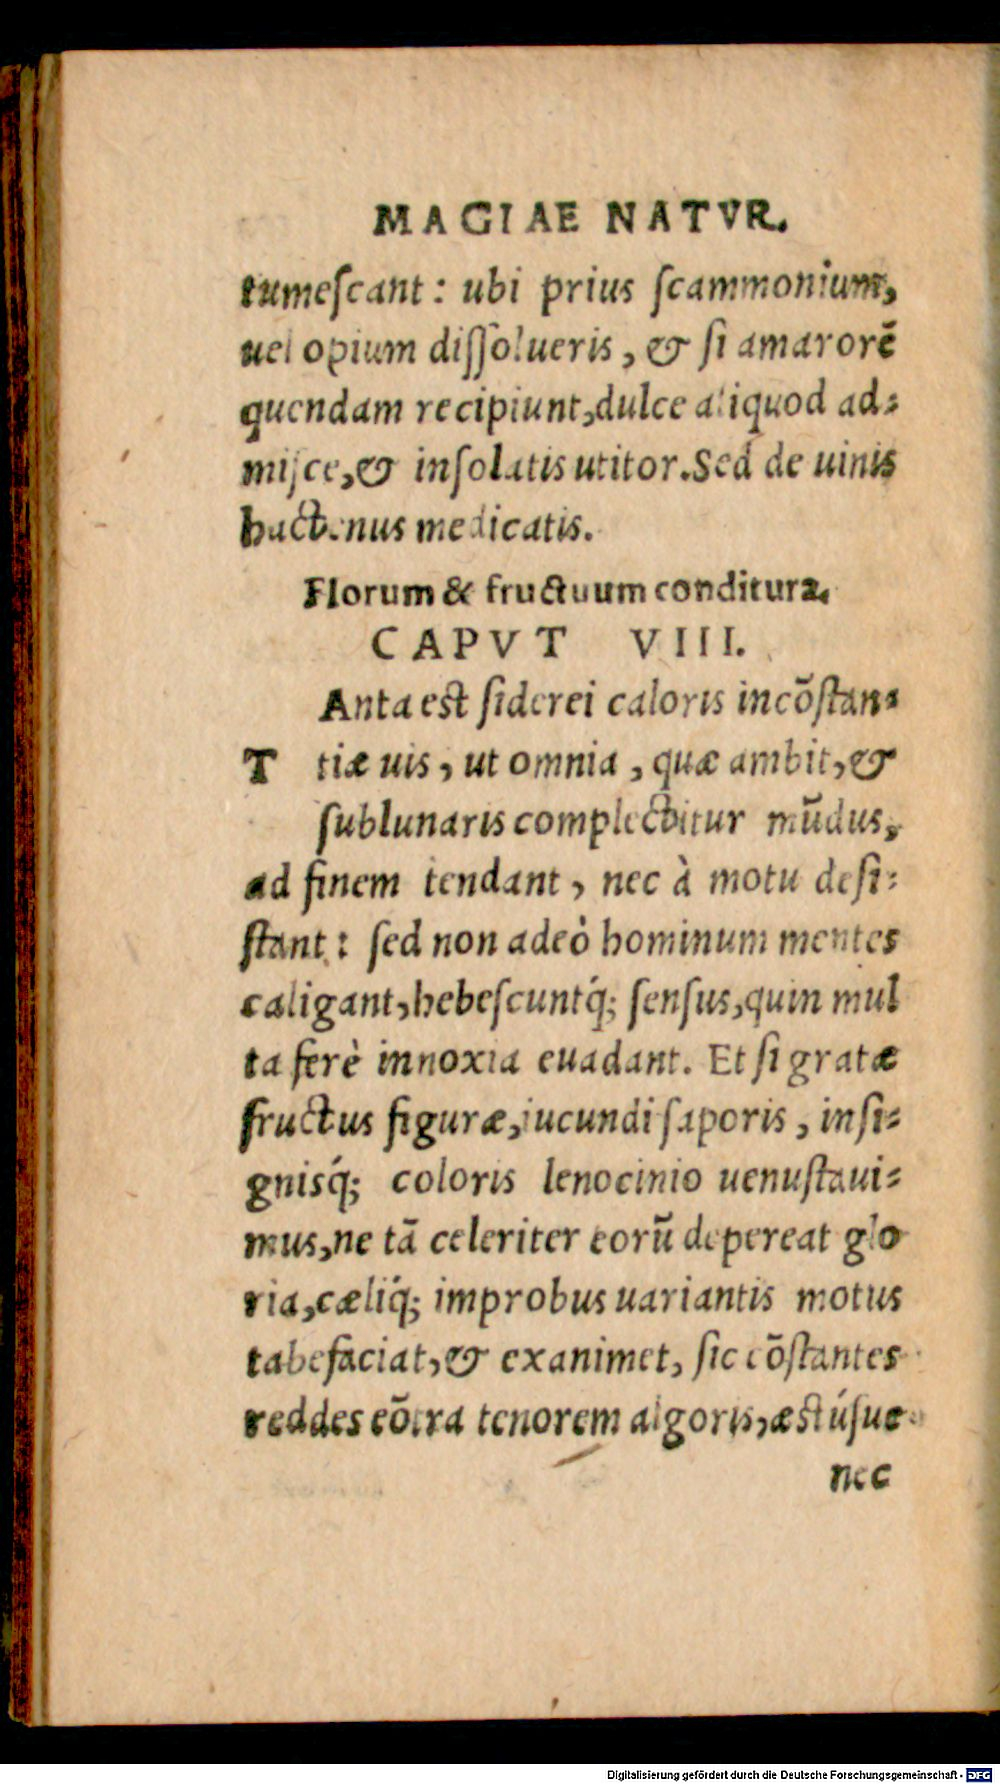 MAGIAE NATVR.
tumeſcant: ubi prius ſcammonium,
uel opium diſſolueris, & ſi amarorē
quendam recipiunt, dulce aliquod ad-
miſce, & inſolatis utitor. Sed de uinis
hactenus medicatis.
Florum & fructuum conditura.
CAPVT VIII.
Anta est ſiderei caloris incōſtan-
T tiæ uis, ut omnia, quæ ambit, &
ſublunaris complectitur mūdus,
ad finem tendant, nec à motu deſi-
ſtant: ſed non adeò hominum mentes
caligant, hebeſcuntq́; ſenſus, quin mul
ta ferè innoxia euadant. Et ſi gratæ
fructus figuræ, iucundi ſaporis, inſi-
gnisq́; coloris lenocinio uenuſtaui-
mus, ne tā celeriter eorū depereat glo
ria, cæliq́; improbus uariantis motus
tabefaciat, & exanimet, ſic cōſtantes
reddes cōtra tenorem algoris, æstúſue
nec
Digitalisierung gefördert durch die Deutsche Forschungsgemeinschaft - DFG